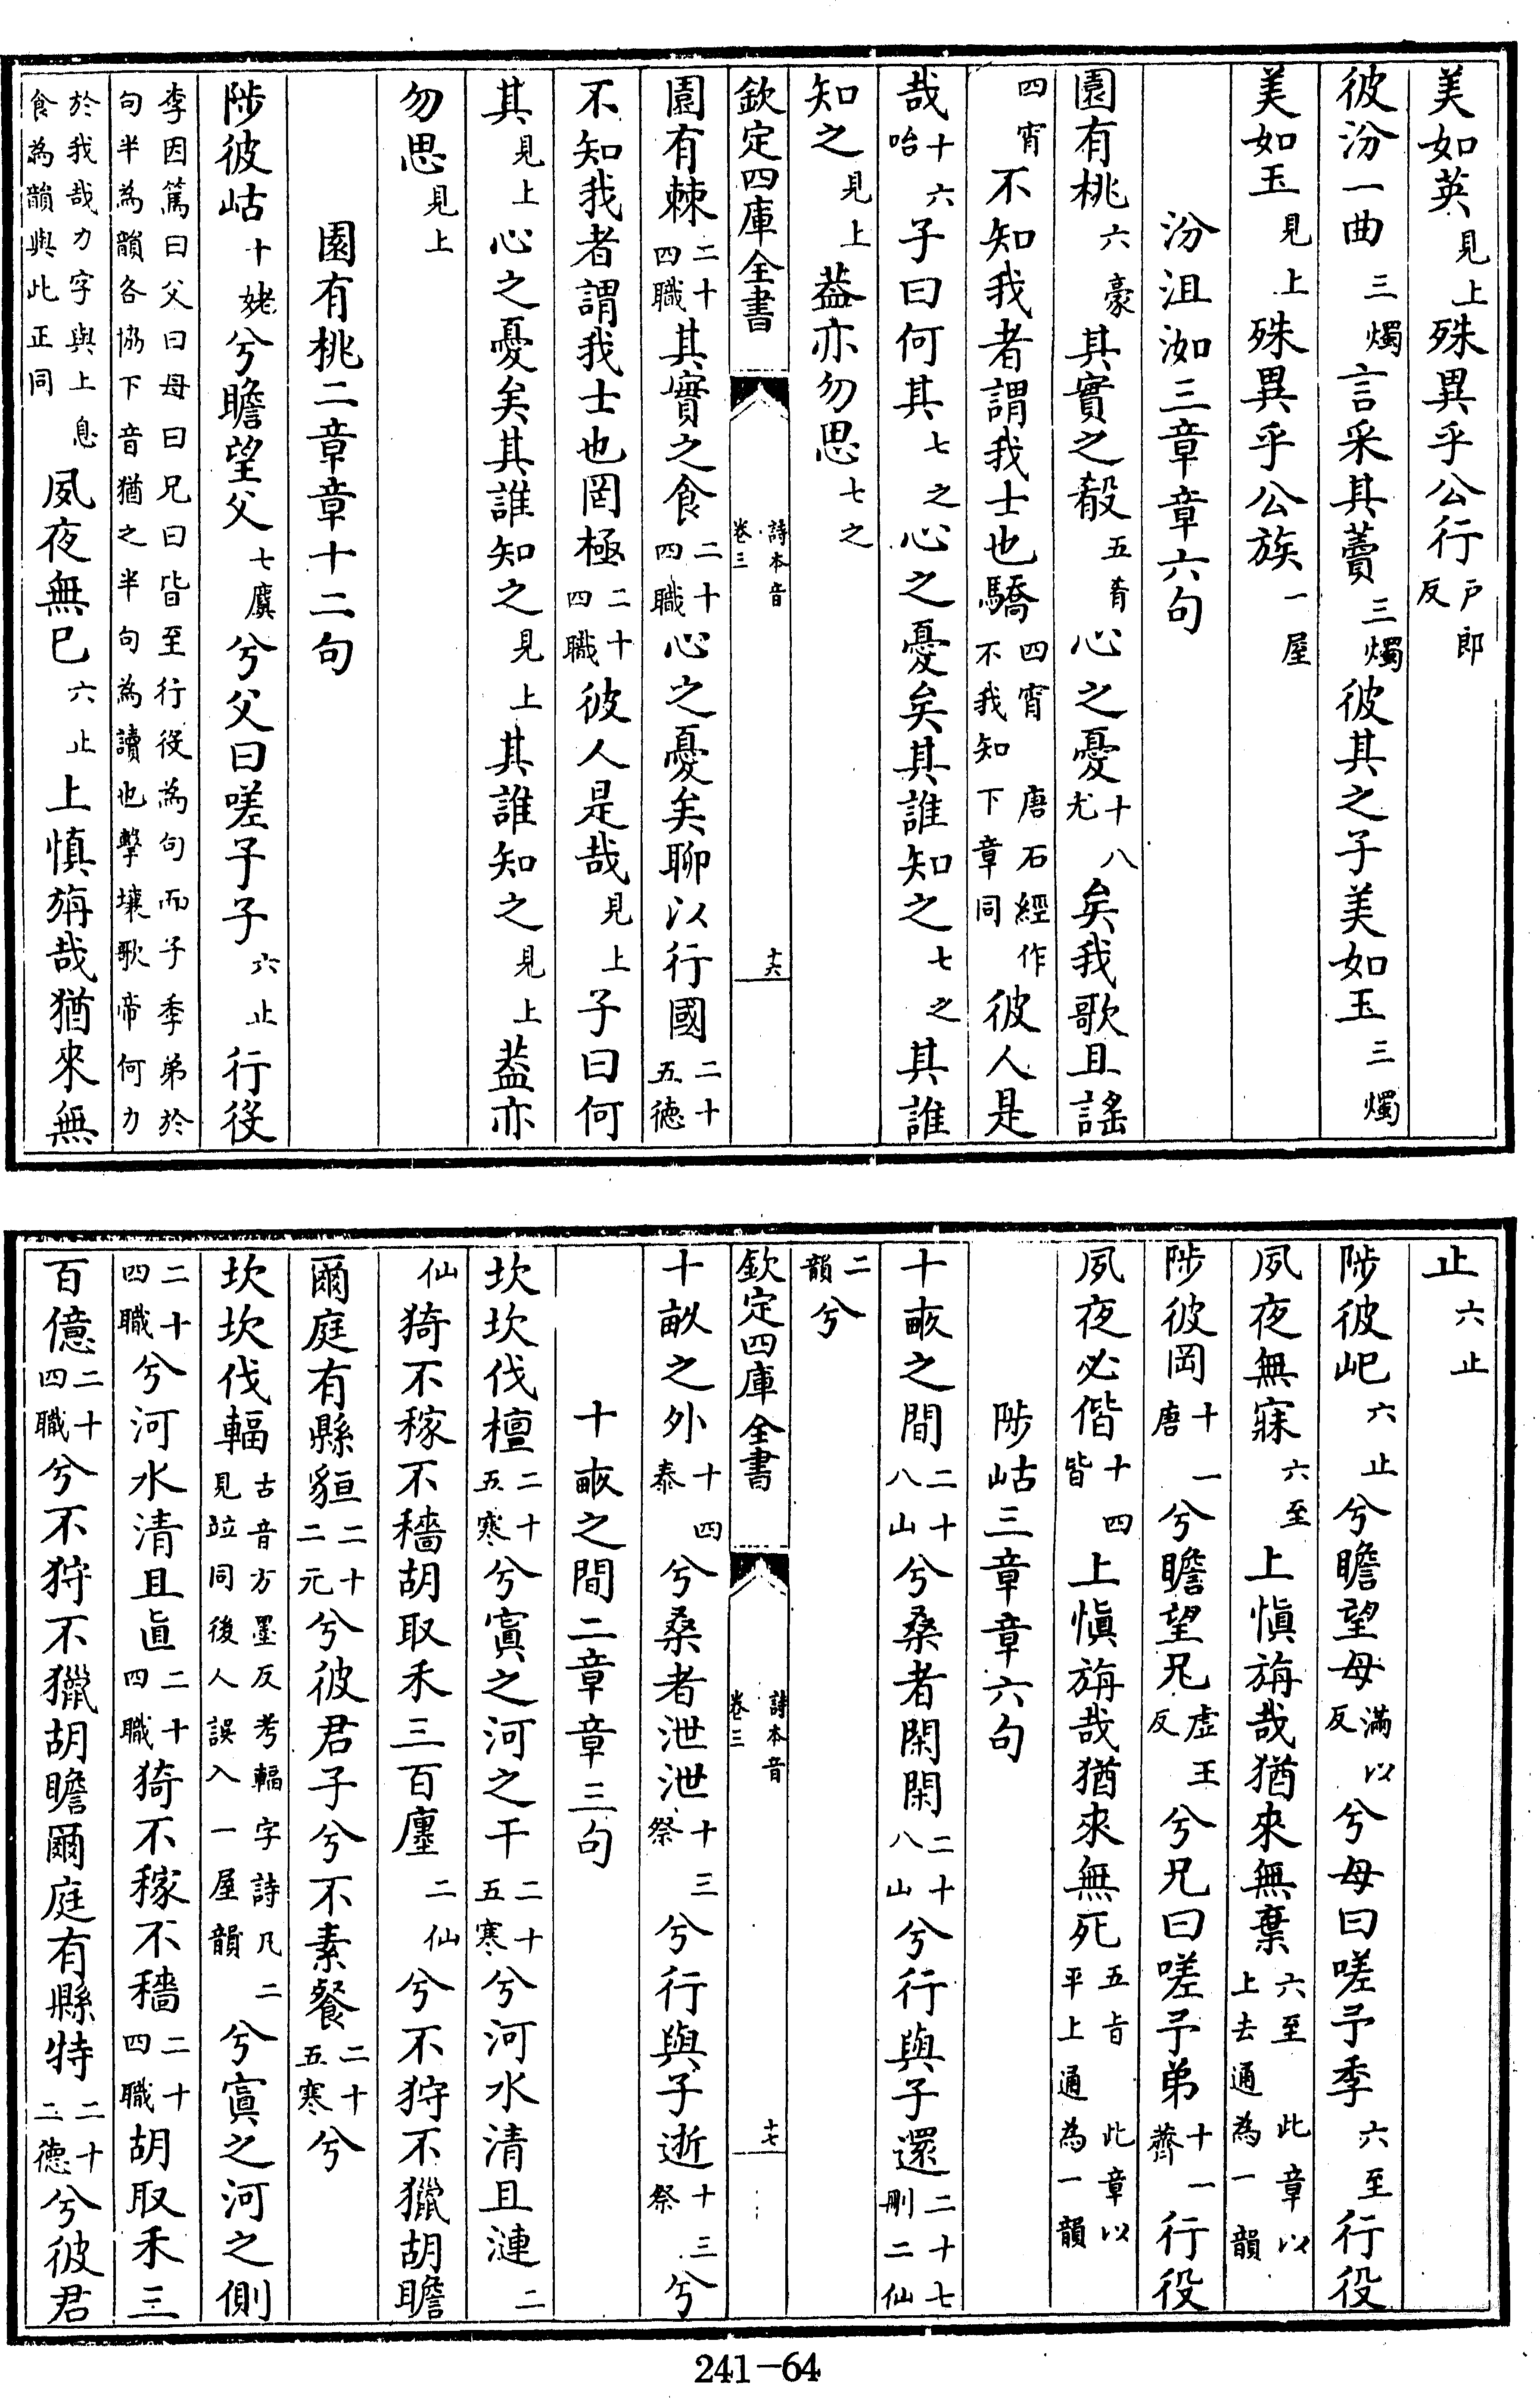 美如英見上殊異乎公行戸郎反
彼汾一曲三燭言采其藚三燭彼其之子美如玉三燭
美如玉見上殊異乎公族一屋
汾沮洳三章章六句
園有桃六豪其實之殽五肴心之憂十八尤矣我歌且謠
四宵不知我者謂我士也驕四宵唐石經作不我知下章同彼人是
哉十六咍子曰何其七之心之憂矣其誰知之七之其誰
知之見上葢亦勿思七之
欽定四庫全書 詩本音卷三 十六
園有棘二十四職其實之食二十四職心之憂矣聊以行國二十五德
不知我者謂我士也罔極二十四職彼人是哉見上子曰何
其見上心之憂矣其誰知之見上其誰知之見上葢亦
勿思見上
園有桃二章章十二句
陟彼岵十姥兮瞻望父七麌兮父曰嗟予子六止行役
李因篤曰父曰母曰兄曰皆至行役為句而子季弟於
句半為韻各協下音猶之半句為讀也擊壤歌帝何力
於我哉力字與上息食為韻與此正同夙夜無已六止上慎旃哉猶來無
止六止
陟彼屺六止兮瞻望母滿以反兮母曰嗟予季六至行役
夙夜無寐六至上愼旃哉猶來無棄六至此章以上去通為一韻
陟彼岡十一唐兮瞻望兄虛王反兮兄曰嗟予弟十一薺行役
夙夜必偕十四皆上愼旃哉猶來無死五旨此章以平上通為一韻
陟岵三章章六句
十畝之間二十八山兮桑者閑閑二十八山兮行與子還二十七刪二仙
二韻兮
欽定四庫全書 詩本音卷三 十七
十畝之外十四泰兮桑者泄泄十三祭兮行與子逝十三祭兮
十畝之間二章章三句
坎坎伐檀二十五寒兮寘之河之干二十五寒兮河水清且漣二
仙猗不稼不穡胡取禾三百廛二仙兮不狩不獵胡瞻
爾庭有縣貆二十二元兮彼君子兮不素餐二十五寒兮
坎坎伐輻古音方墨反考輻字詩凡二見竝同後人誤入一屋韻兮寘之河之側
二十四職兮河水清且直二十四職猗不稼不穡二十四職胡取禾三
百億二十四職兮不狩不獵胡瞻爾庭有縣特二十二德兮彼君
241-64